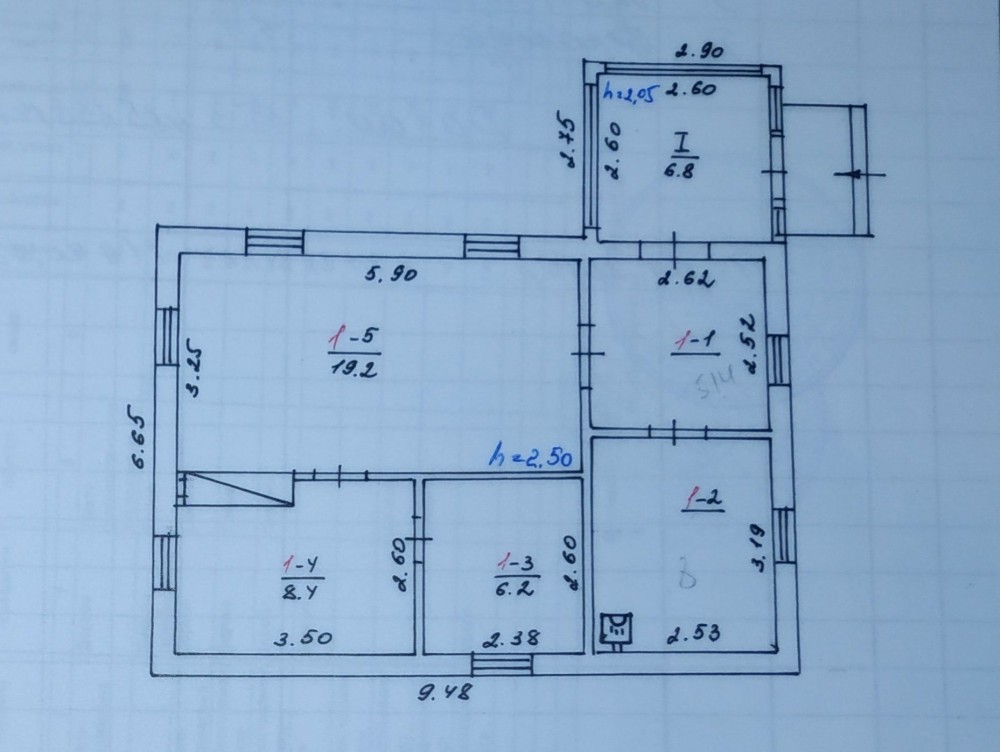 2.90
h=2,05
2.60
2.75
2.60
I
6.8
5.90
2.62
1-5
19.2
3.25
1-1
2.52
6.65
h=2.50
1-2
1-4
8.4
2.60
1-3
6.2
2.60
3.19
8
3.50
2.38
2.53
9.48